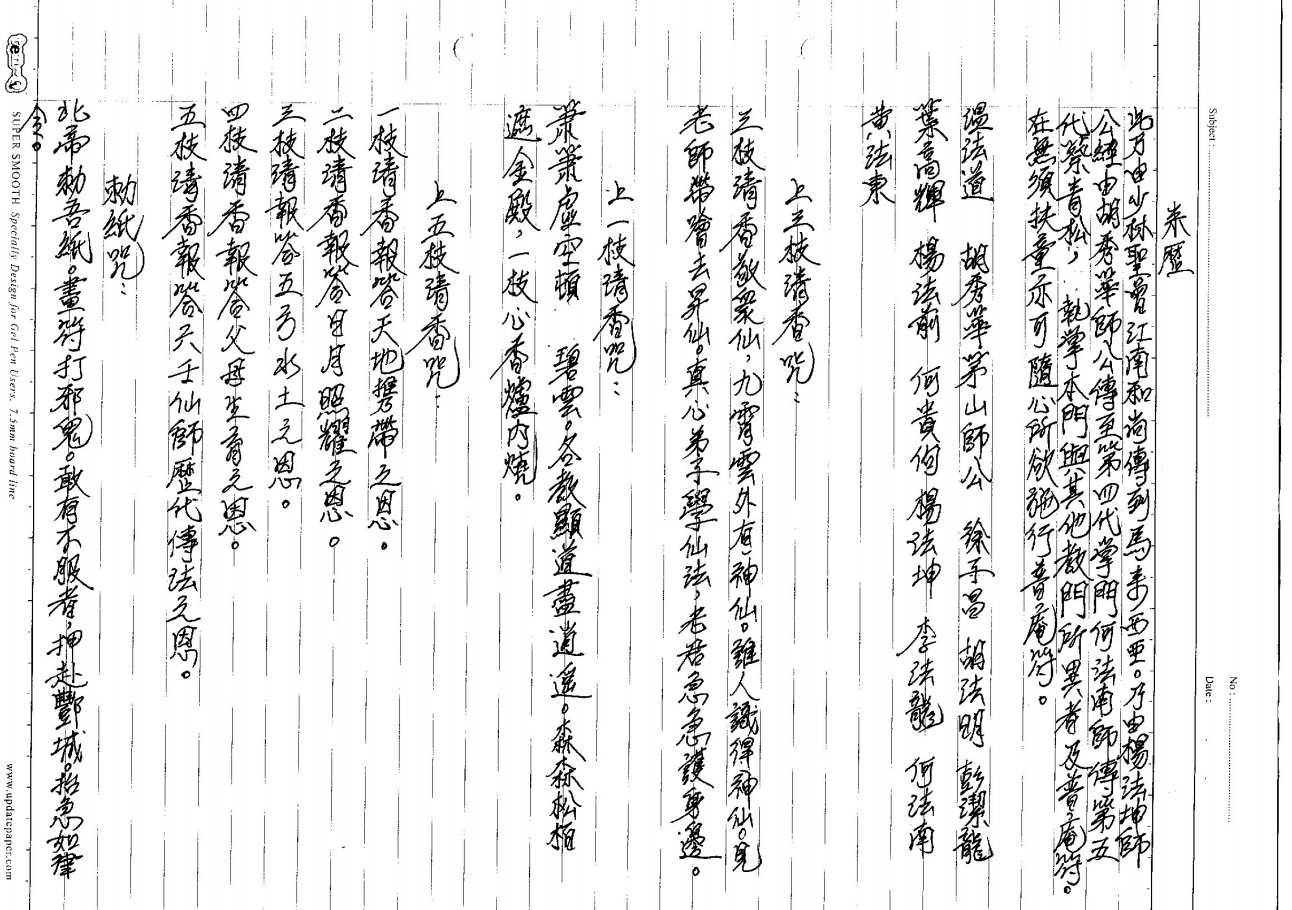 Subject :
No :
Date :
来歷
此乃由少林聖曾江南和尚傳到馬来西亜。乃由楊法坤師
公經由胡秀華師公傳至第四代掌門何法南師傳第五
代蔡青松，執掌本門與其他教門所異者及普庵符。
在無須扶童亦可隨心所欲施行普庵符。
溫法道 胡秀華茅山師公 徐子昌 胡法明 彭潔龍
葉高輝 楊法前 何貴佝 楊法坤 李法龍 何法南
黄法東
上三枝清香咒：
三枝清香敬眾仙，九霄雲外有神仙。雖人識得神仙。見
老師帶噲去昇仙。真心弟子學仙法，老君急急護身邊。
上一枝清香咒：
箫箫虛空頓 碧雲。各教顯道盡逍遥。森森松柏
遮金殿，一枝心香爐內燒。
上五枝清香咒：
一枝清香報答天地携帶之恩。
二枝清香報答日月照耀之恩。
三枝清報答五方水土之恩。
四枝清香報答父母生育之恩。
五枝清香報答六壬仙師歷代傳法之恩。
勅紙咒：
北帝勅吾紙。畫符打邪鬼。敢有不服者，押赴酆城。急如律
令。
SUPER SMOOTH Specially Design for Gel Pen Users. 7.5mm hoard line
www.updatepaper.com